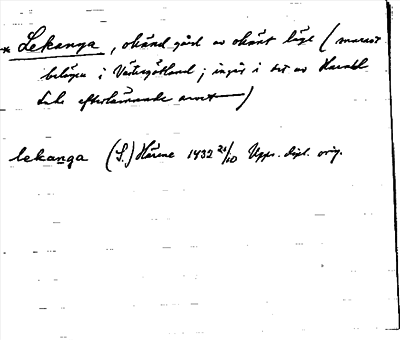 * Lekanga, okänd gård av okänt läge (
belägen i Västergötland; ingår i det av Harald
efterlämnade arvet —)
lekanga (S.) Härene 1432 21/10 Upps. dipl. orig.